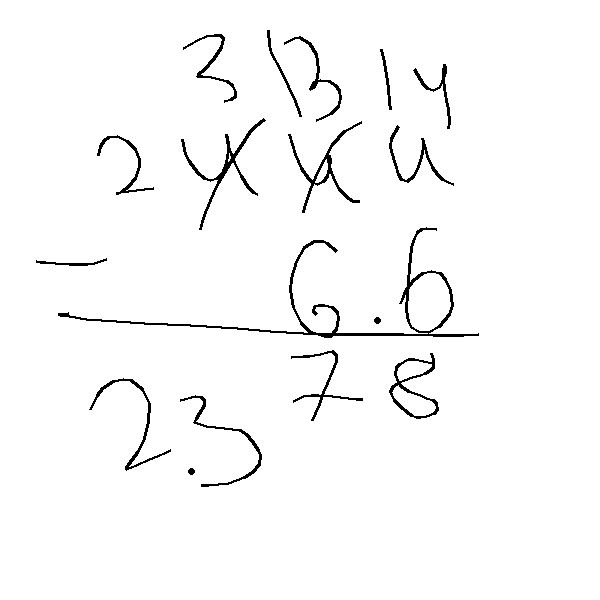 3 13 14
2 4 4 4
- 6.6
2.3 7 8